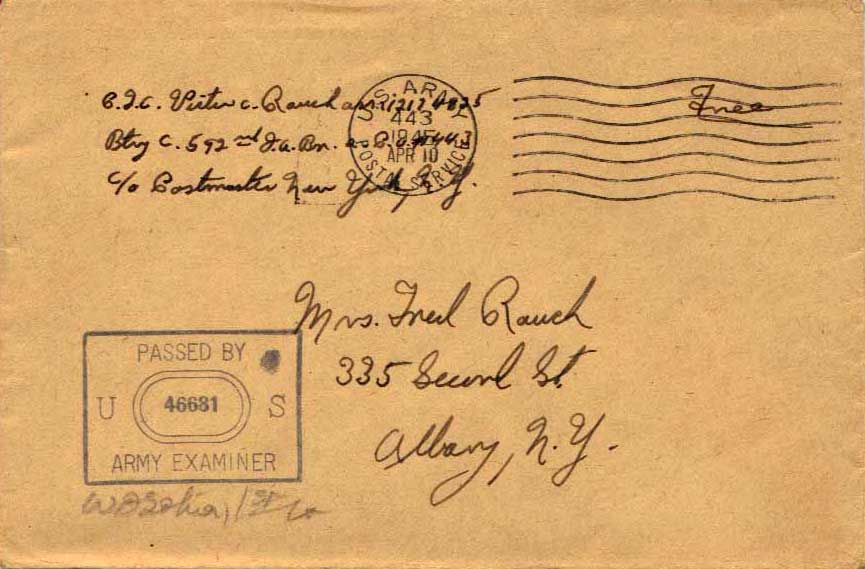 Victor C. Rauch
Btry C. 592nd F.A. Bn. A.P.O. #443
c/o Postmaster New York, N.Y.
U.S. ARMY
443
1945
APR 10
POSTAL SERVICE
Free
Mrs. Fred Rauch
335 Second St.
Albany, N.Y.
PASSED BY
U 46681 S
ARMY EXAMINER
1st Lt